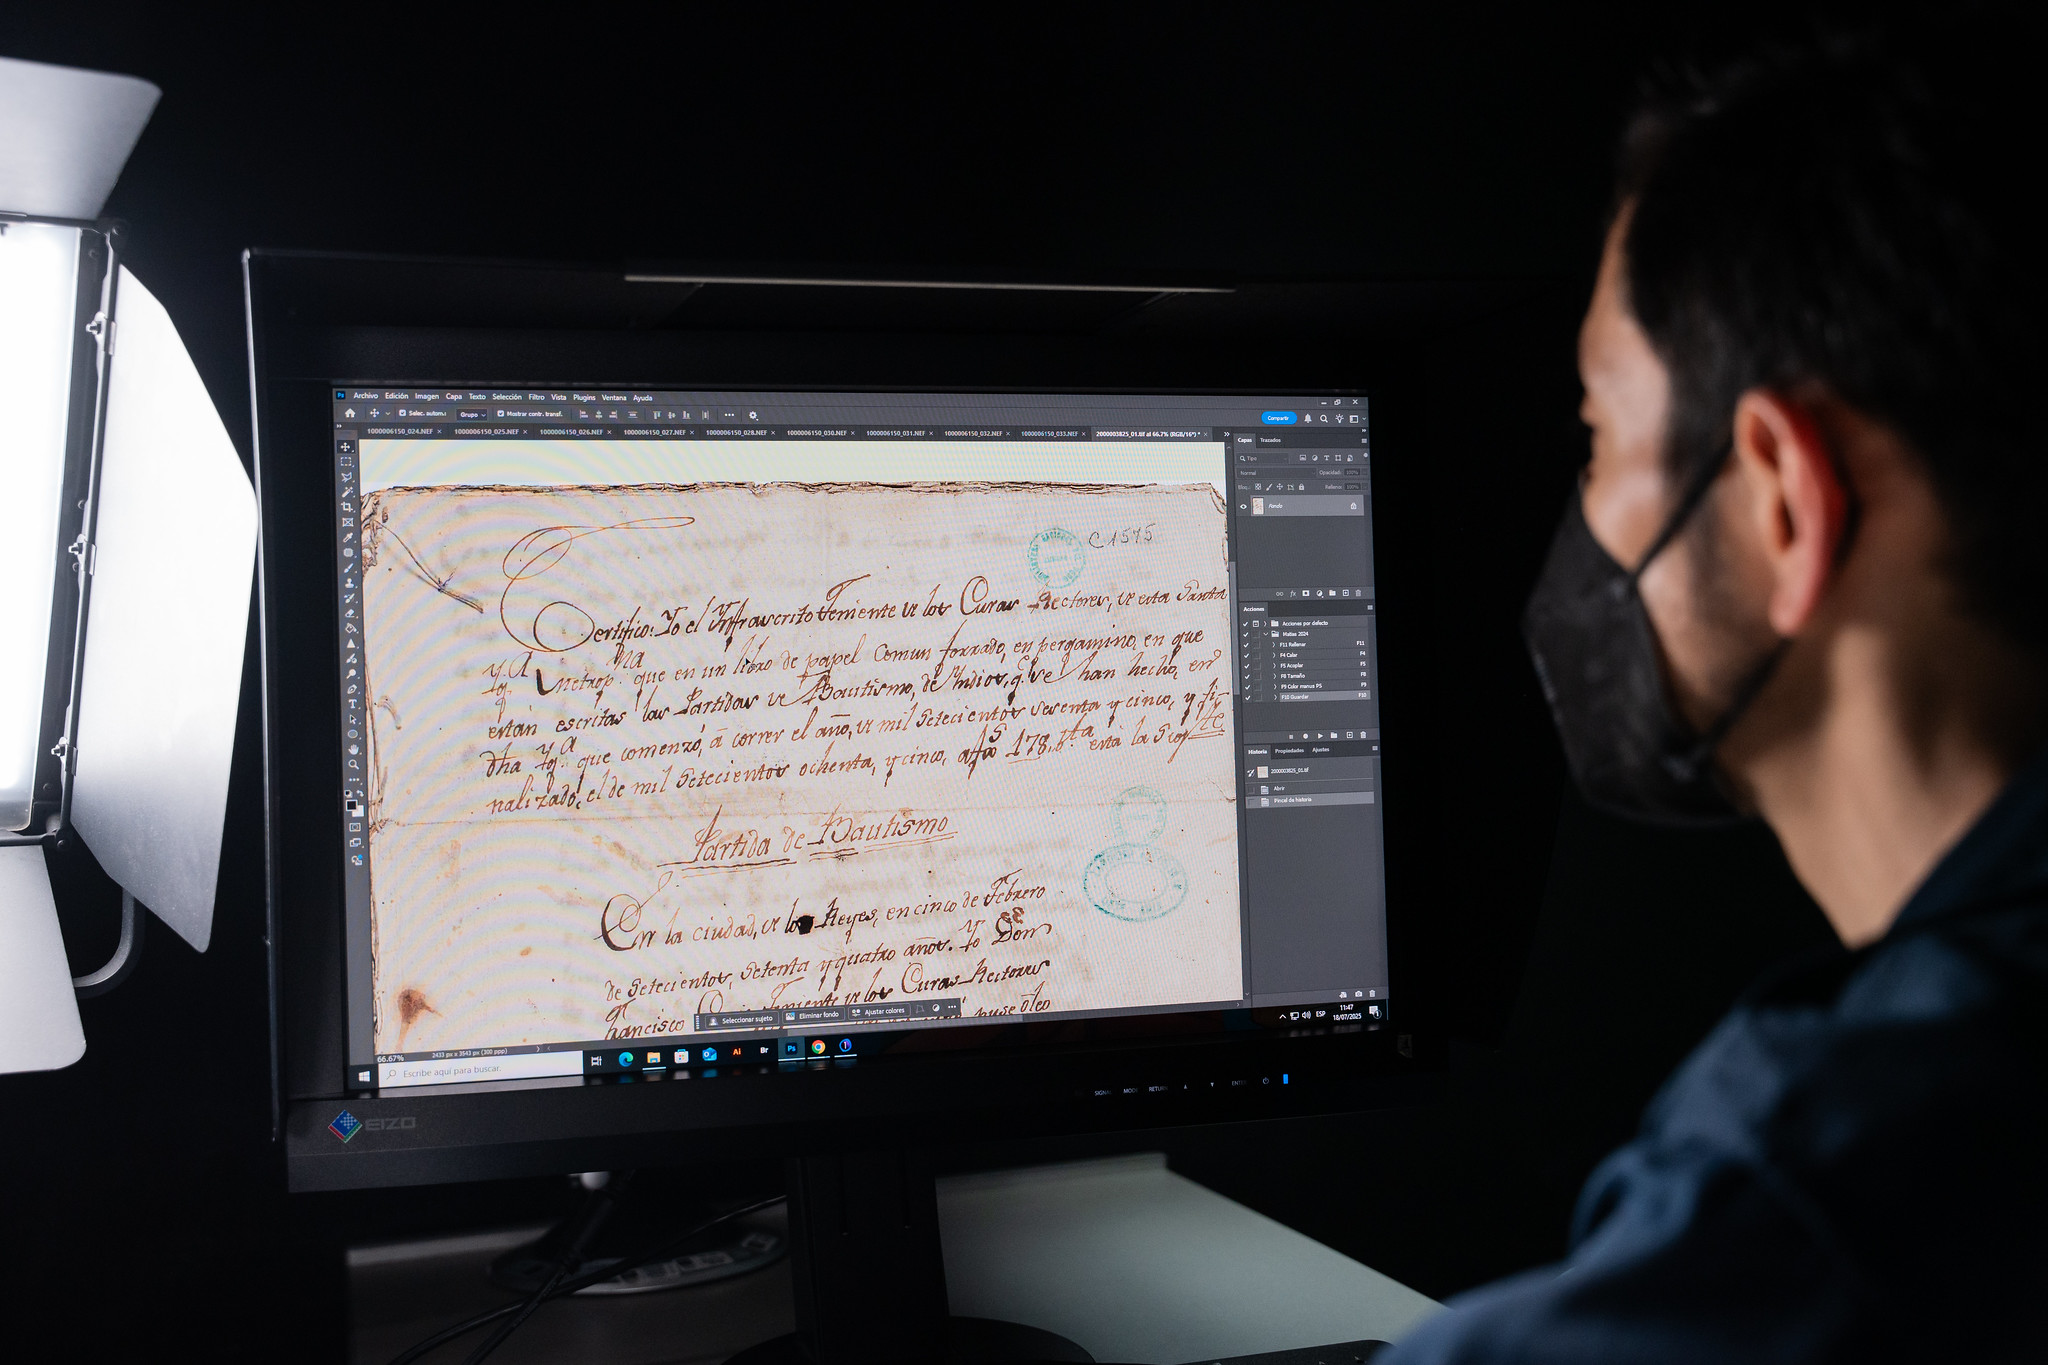 Archivo Edición Imagen Capa Texto Selección Filtro Vista Plugins Ventana Ayuda
Selec. autom.: Grupo Mostrar contr. transf. Compartir
1000006150_024.NEF × 1000006150_025.NEF × 1000006150_026.NEF × 1000006150_027.NEF × 1000006150_028.NEF × 1000006150_030.NEF × 1000006150_031.NEF × 1000006150_032.NEF × 1000006150_033.NEF × 2000003825_01.tif al 66.7% (RGB/16*) * ×
Capas Trazados
Tipo
Normal Opacidad: 100%
Relleno: 100%
Fondo
C1575
Certifico: Yo el Infrascrito Teniente de los Curas Rectores, de esta Santa
Yg.ª Metrop.na que en un libro de papel Comun forrado, en pergamino, en que
están escritas las Partidas de Bautismo, de Indios, q.e se han hecho, en
dha Yg.ª que comenzó, á correr el año, de mil Setecientos sesenta y cinco, y fi-
nalizado, el de mil Setecientos ochenta, y cinco, está la
Partida de Bautismo
En la ciudad, de los Reyes, en cinco de Febrero
de Setecientos, Setenta y quatro años. Yo Don
Francisco Teniente de los Curas Rectores
puse óleo
Acciones
Acciones por defecto
Matias 2024
F11 Rellenar F11
F4 Calar F4
F5 Acoplar F5
F8 Tamaño F8
F9 Color menus PS F9
F10 Guardar F10
Historia Propiedades Ajustes
2000003825_01.tif
Abrir
Pincel de historia
Seleccionar sujeto Eliminar fondo Ajustar colores
66.67% 2433 px x 3543 px (300 ppp)
Escribe aquí para buscar.
Ai Br Ps
ESP 11:47
18/07/2025
EIZO
SIGNAL MODE RETURN ENTER